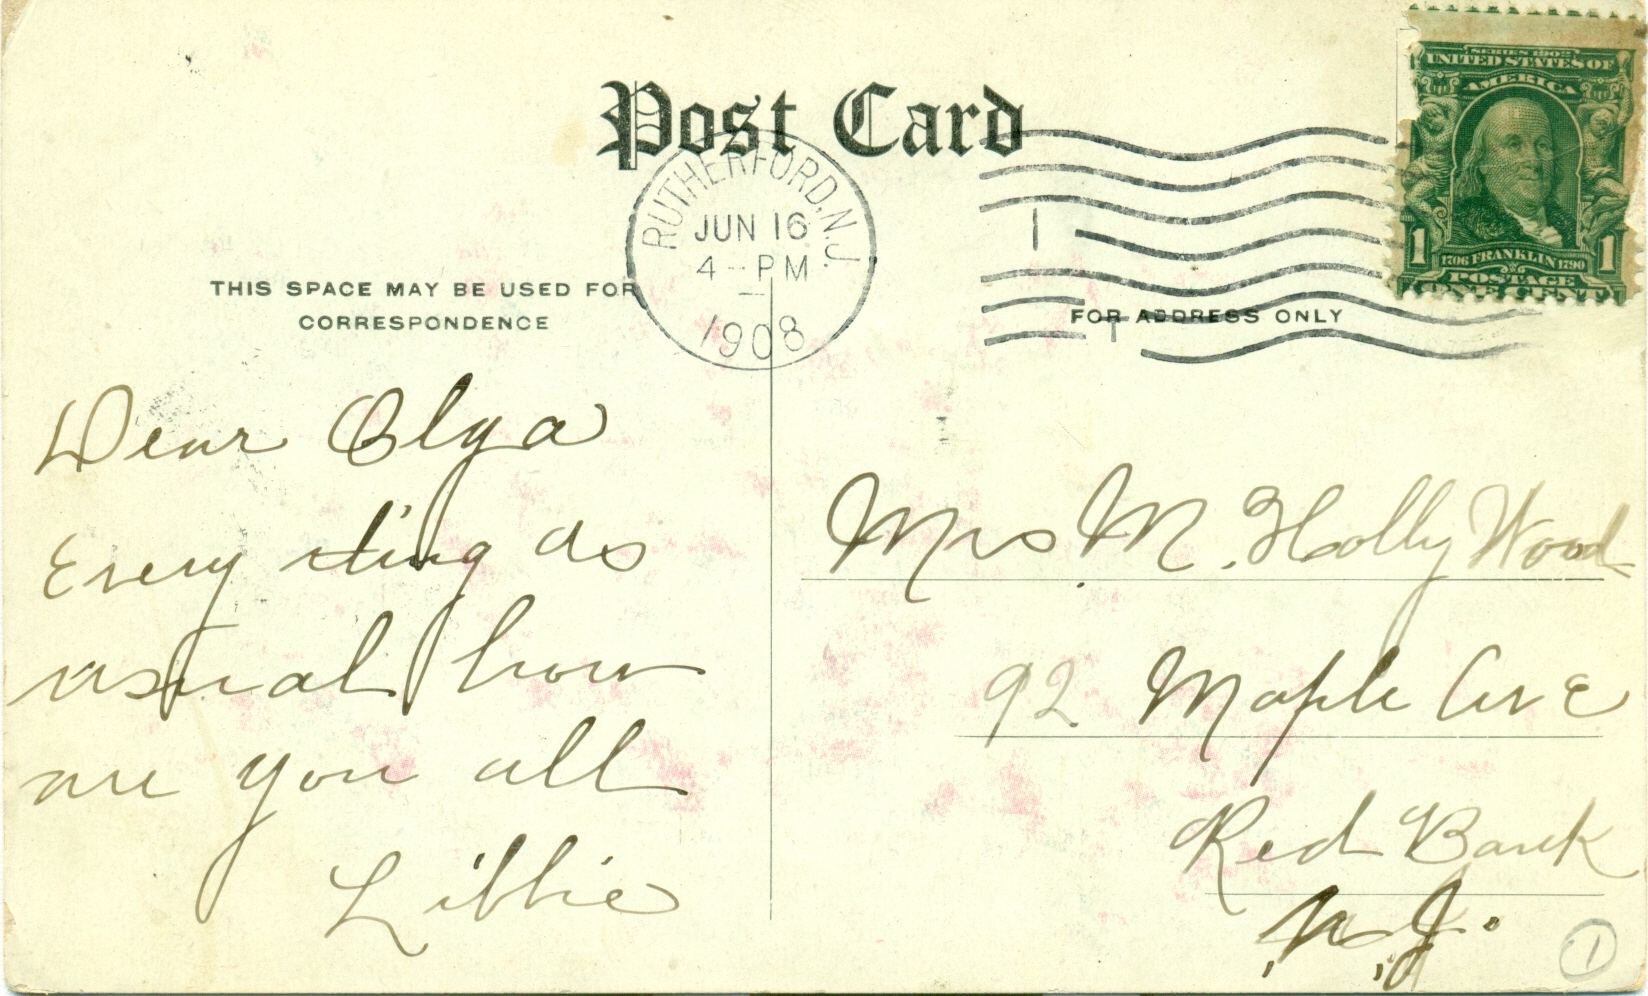 Post Card
RUTHERFORD, N.J.
JUN 16
4-PM
1908
SERIES 1902
UNITED STATES OF
AMERICA
1 1
1706 FRANKLIN 1790
POSTAGE
ONE CENT
THIS SPACE MAY BE USED FOR
CORRESPONDENCE
FOR ADDRESS ONLY
Dear Olga
Every thing as
usual how
are you all
Libbie
Mrs M. Holly Wood
92 Maple Ave
Red Bank
N.J.
1